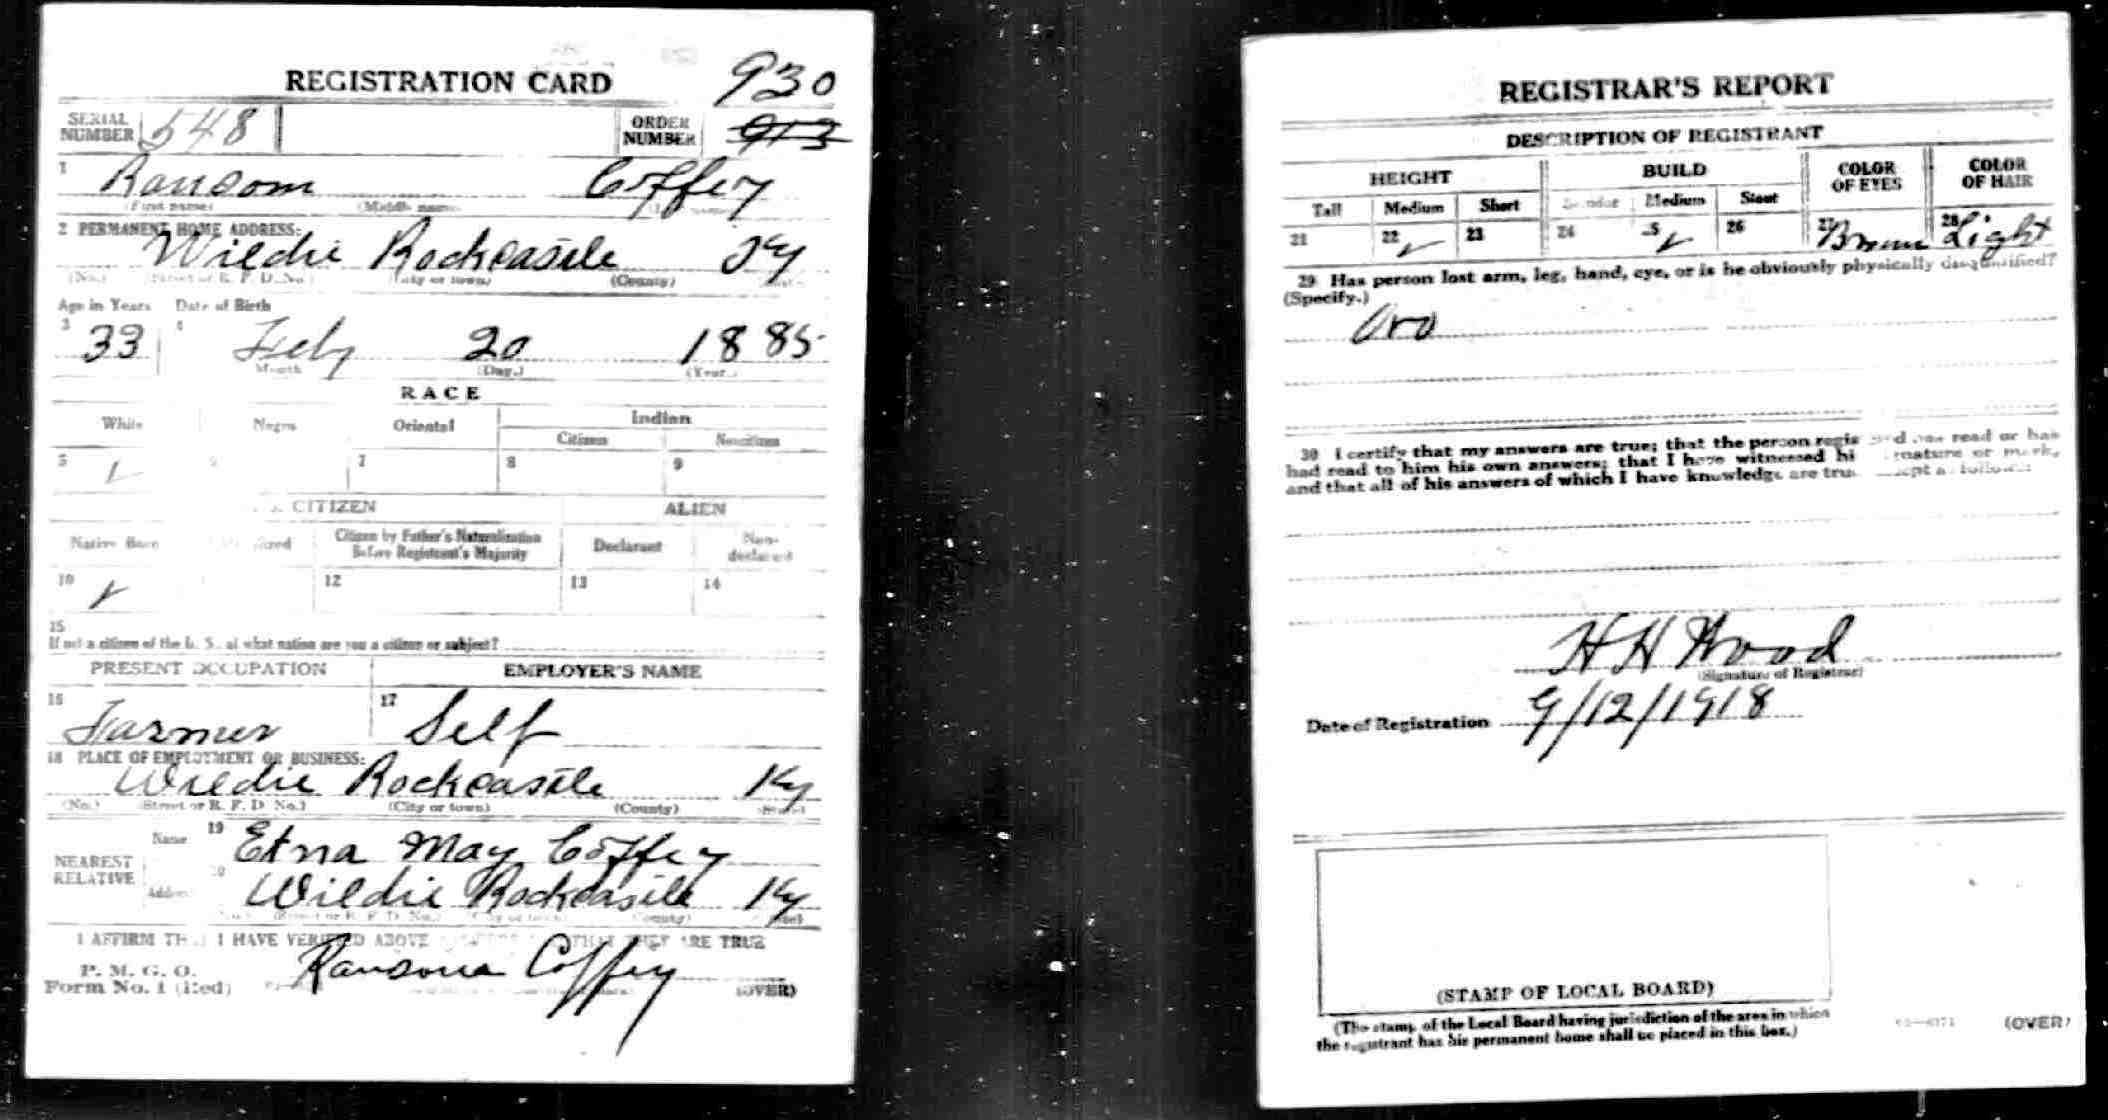 REGISTRATION CARD 930
SERIAL NUMBER 548 ORDER NUMBER 913
1 Ransom Coffey
(First name) (Middle name)
2 PERMANENT HOME ADDRESS:
Wildie Rockcastle Ky
(No.) (Street or R. F. D. No.) (City or town) (County)
Age in Years Date of Birth
3 33 4 Feby 20 1885
Month (Day.) (Year.)
RACE
White Negro Oriental Indian
Citizen Noncitizen
5 ✓ 7 8 9
CITIZEN ALIEN
Native Born Citizen by Father's Naturalization Before Registrant's Majority Declarant Non-declarant
10 ✓ 12 13 14
15
If not a citizen of the U. S., of what nation are you a citizen or subject?
PRESENT OCCUPATION EMPLOYER'S NAME
16 Farmer 17 Self
18 PLACE OF EMPLOYMENT OR BUSINESS:
Wildie Rockcastle Ky
(No.) (Street or R. F. D. No.) (City or town) (County) (State)
NEAREST RELATIVE
Name 19 Etna May Coffey
Address 20 Wildie Rockcastle Ky
(No.) (Street or R. F. D. No.) (City or town) (County) (State)
I AFFIRM THAT I HAVE VERIFIED ABOVE ANSWERS AND THAT THEY ARE TRUE
P. M. G. O.
Form No. 1 (Red) Ransom Coffey (OVER)
REGISTRAR'S REPORT
DESCRIPTION OF REGISTRANT
HEIGHT BUILD COLOR OF EYES COLOR OF HAIR
Tall Medium Short Slender Medium Stout
21 22 ✓ 23 24 25 ✓ 26 27 Brown 28 Light
29 Has person lost arm, leg, hand, eye, or is he obviously physically disqualified?
(Specify.)
30 I certify that my answers are true; that the person registered has read or has
had read to him his own answers; that I have witnessed his signature or mark,
and that all of his answers of which I have knowledge are true, except as follows:
H H Wood
(Signature of Registrar)
Date of Registration 9/12/1918
(STAMP OF LOCAL BOARD)
(The stamp of the Local Board having jurisdiction of the area in which
the registrant has his permanent home shall be placed in this box.)
(OVER)